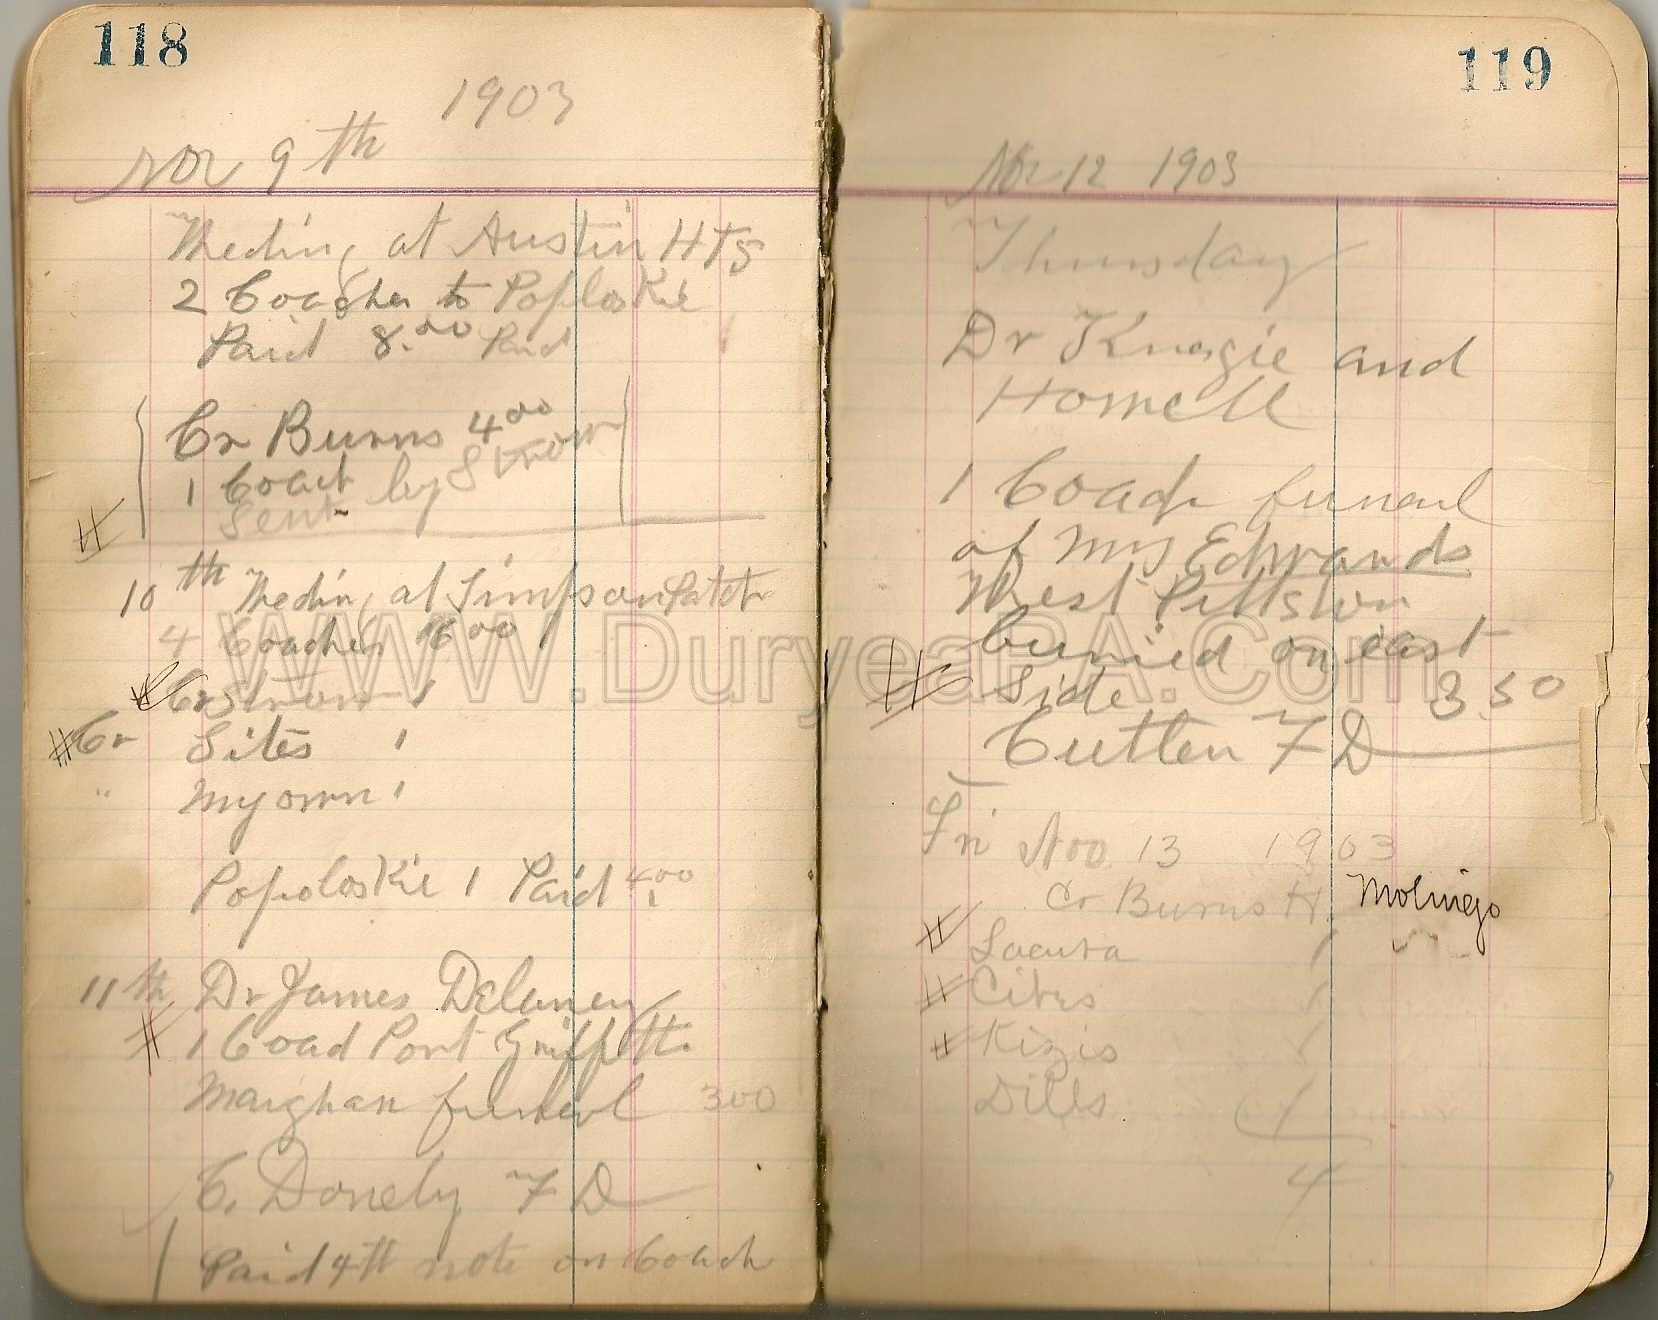 118
1903
Nov 9th
Weding at Austin HTS
2 Coaches to Poploskie
Paid 8.00 Paid
Cr Burns 4 00
1 Coach by Strom
Sent
10th Weding at Simpson Patch
4 Coaches 16 00
Cr Strom 1
Cr Sites 1
" My own 1
Popoloskie 1 Paid 4.00
11th Dr James Delaney
1 Coach Port Griffith
Maighan funeral 300
C. Donely F D
Paid 4th note on Coach
119
Nov 12 1903
Thursday
Dr Knagie and
Howell
1 Coach funeral
of Mrs Edwards
West Pittston
buried on east
Side 3.50
Cutten F D
Fri Nov 13 1903
Cr Burns H. Molinigo
Lacura 1
Cites 1
Kizis 1
Dills 1
4
WWW.DuryeaPA.Com